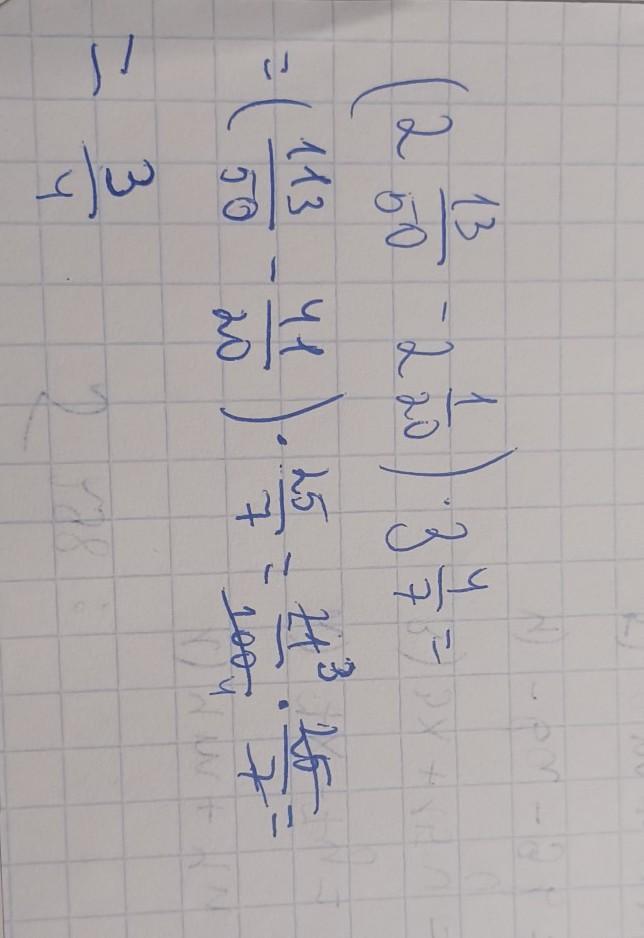 (2 13/50 - 2 1/20) · 3 4/7 =
= (113/50 - 41/20) · 25/7 = 21 3/100 4 · 25/7 =
= 3/4